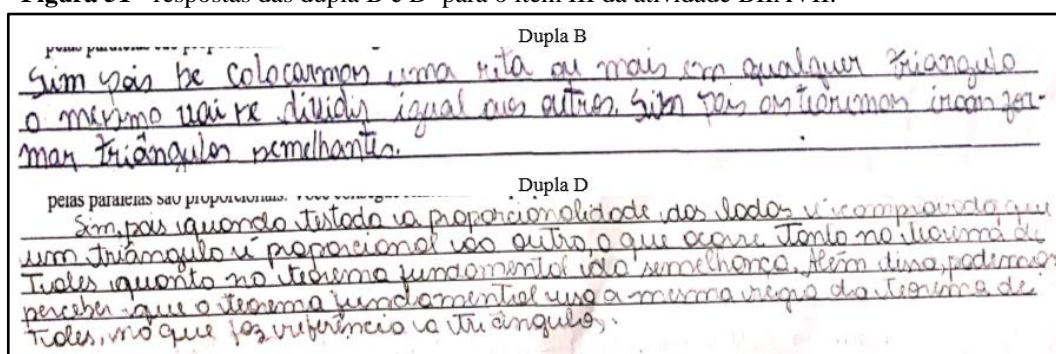 Figura 51 - respostas das dupla B e D para o item III da atividade
Dupla B
Sim pois se colocarmos uma reta ou mais em qualquer triangulo
o mesmo vai se dividir igual aos outros. Sim pois os teoremas iram for-
mar triângulos semelhantes.
Dupla D
pelas paralelas são proporcionais.
Sim, pois quando testada a proporcionalidade dos lados é comprovado que
um triângulo é proporcional ao outro, o que ocorre tanto no teorema de
Tales quanto no teorema fundamental da semelhança. Além disso, podemos
perceber que o teorema fundamental usa a mesma regra do teorema de
Tales, no que faz referência a triângulos.